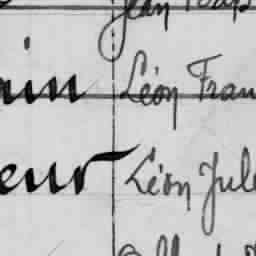 Jean
ain Léon Fran
eur Léon Jul